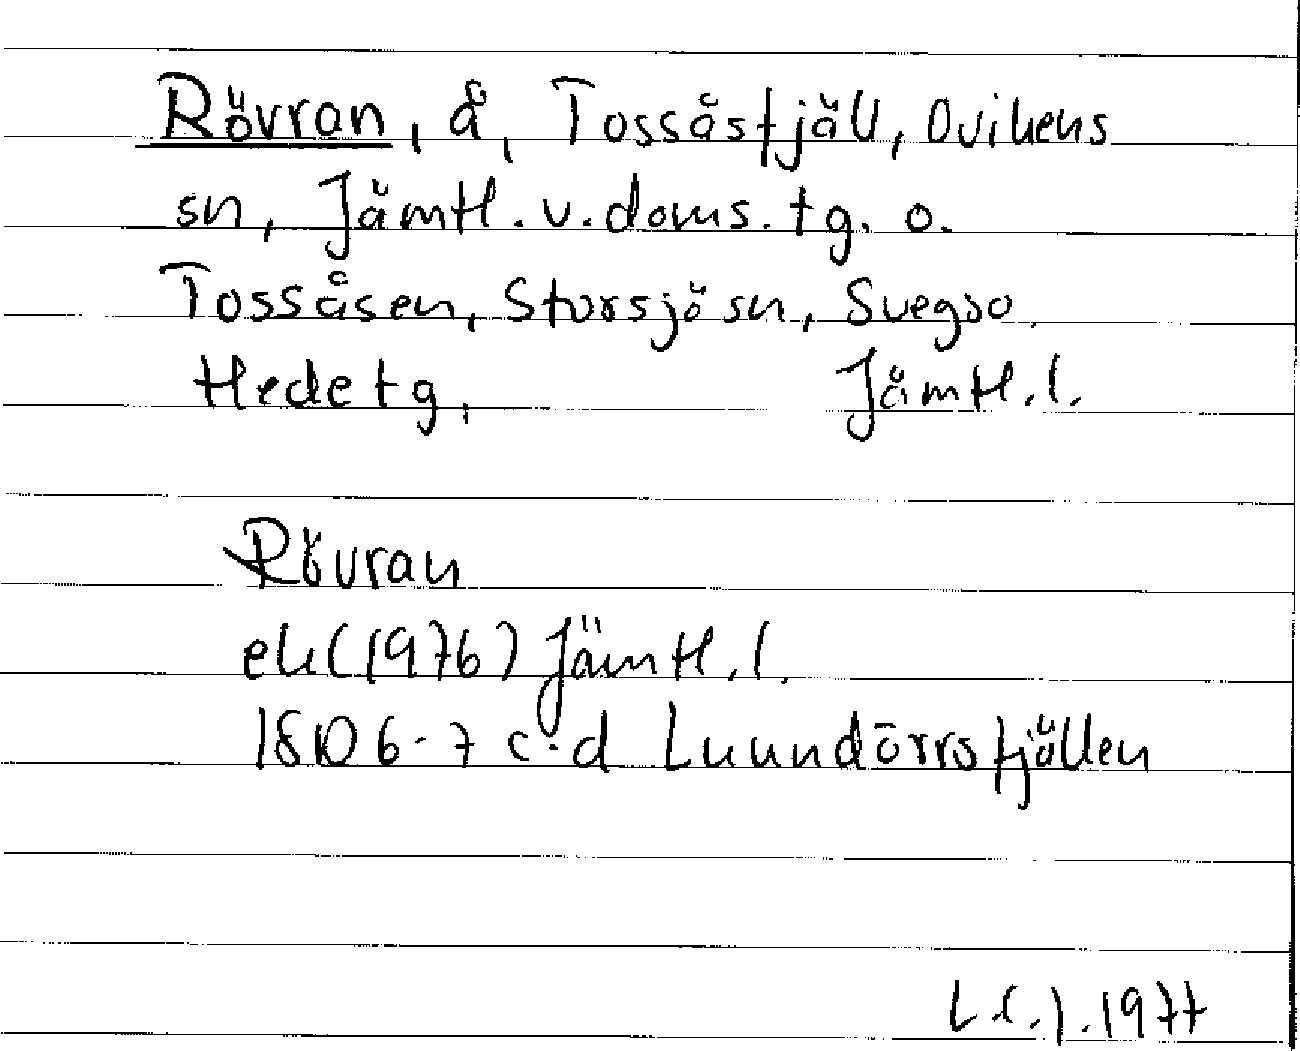 Rövran, å, Tossåsfjäll, Ovikens
sn, Jämtl. v. doms. tg. o.
Tossåsen, Storsjö sn, Svegs o.
Hede tg, Jämtl. l.
Rövran
ek (1976) Jämtl. l.
18D 6-7 c-d Lunndörrsfjällen
1977